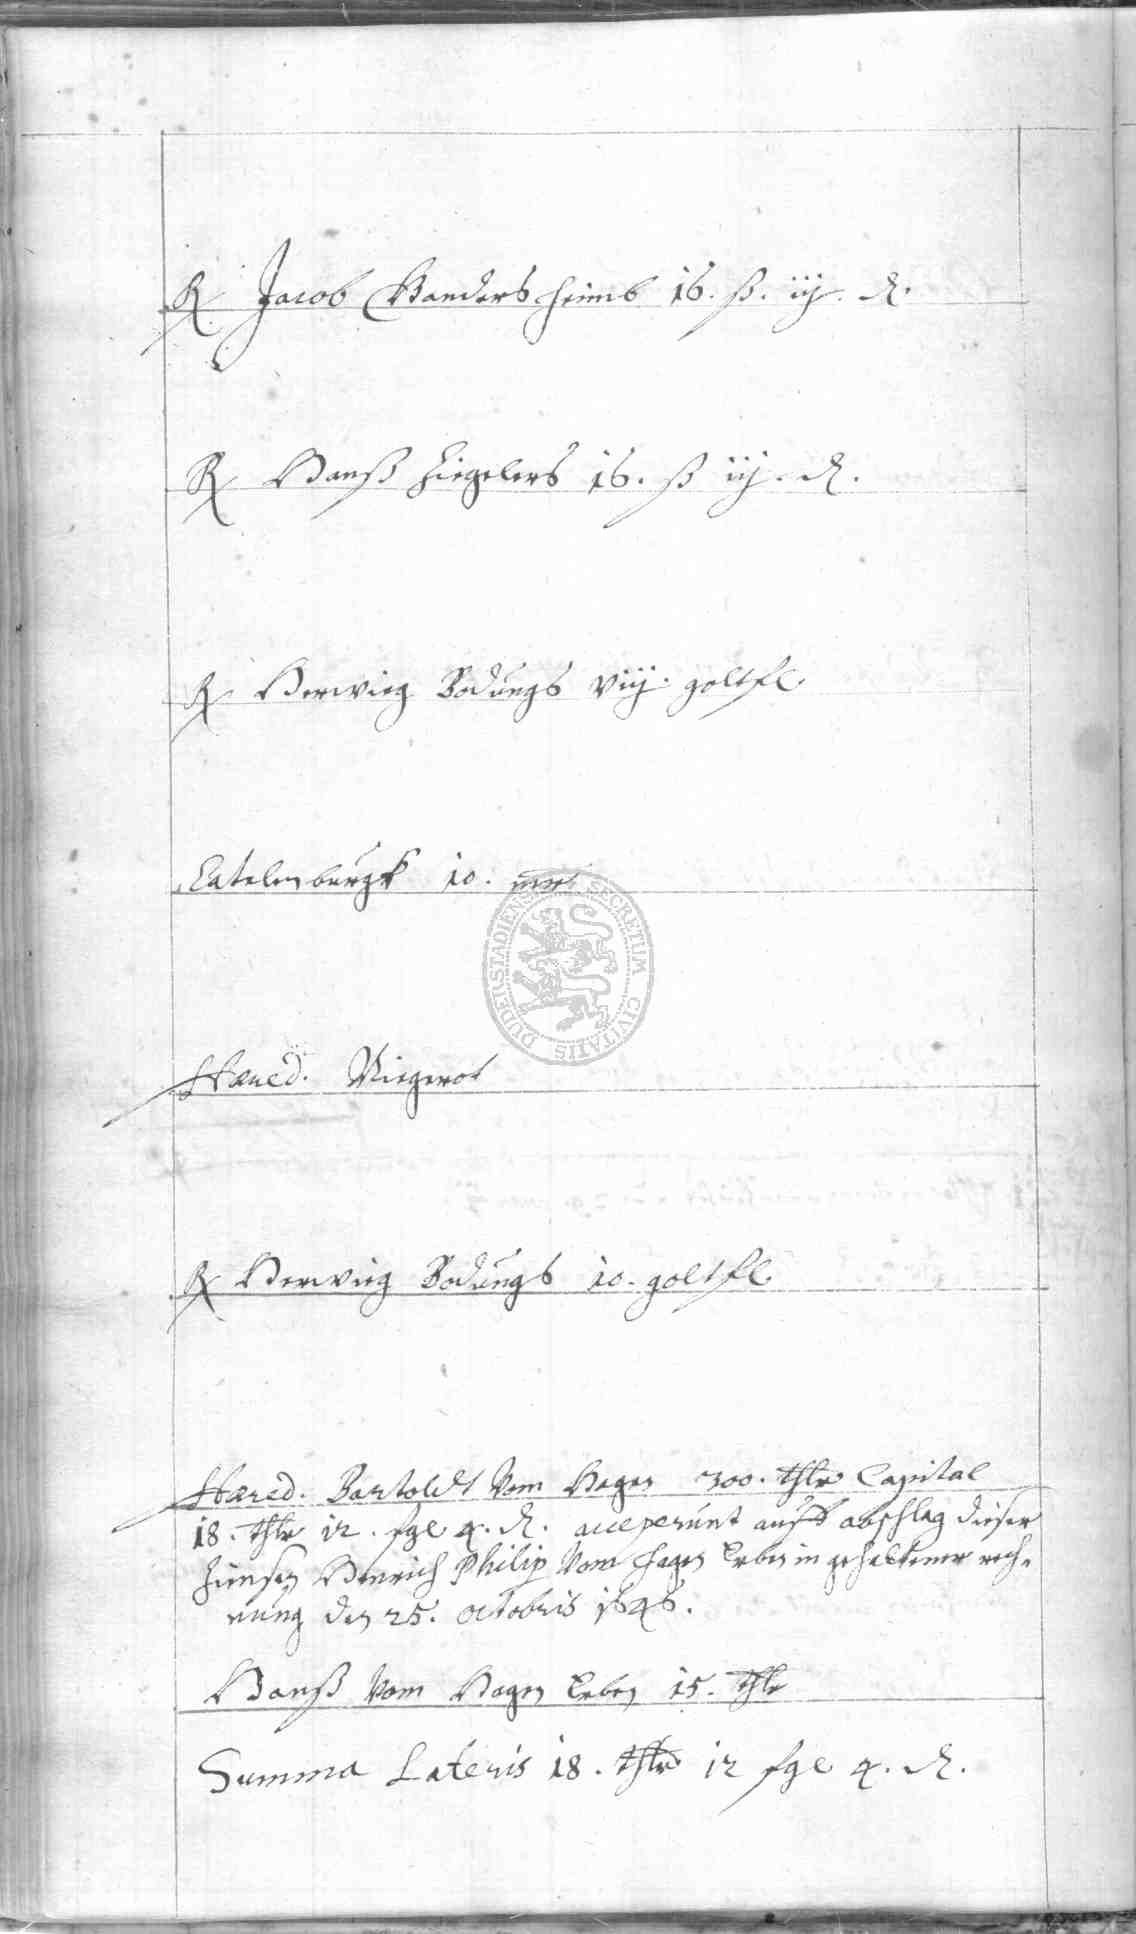 R Jacob Gandersheimb 16. ß. iij. d.
R Hanß Ziegelers 16. ß iij. d.
R Herwieg Bodungs viij. goltfl.
Catelenburgk 10. mr
Hæred. Wiegerot
R Herwieg Bodungs 10. goltfl.
Hæred. Bartoldt Vom Hagen 300. thlr Capital
18. thlr 12. sgl 4. d. acceperunt auff abschlag dieser
Zinsen Henrich Philip Vom Hagen Erben in gehaltener rech-
nung den 25. octobris 1646.
Hanß Vom Hagen Erben 15. thlr
Summa Lateris 18. thlr 12 sgl 4. d.
DUDERSTADIENSIS SECRETUM CIVITATIS